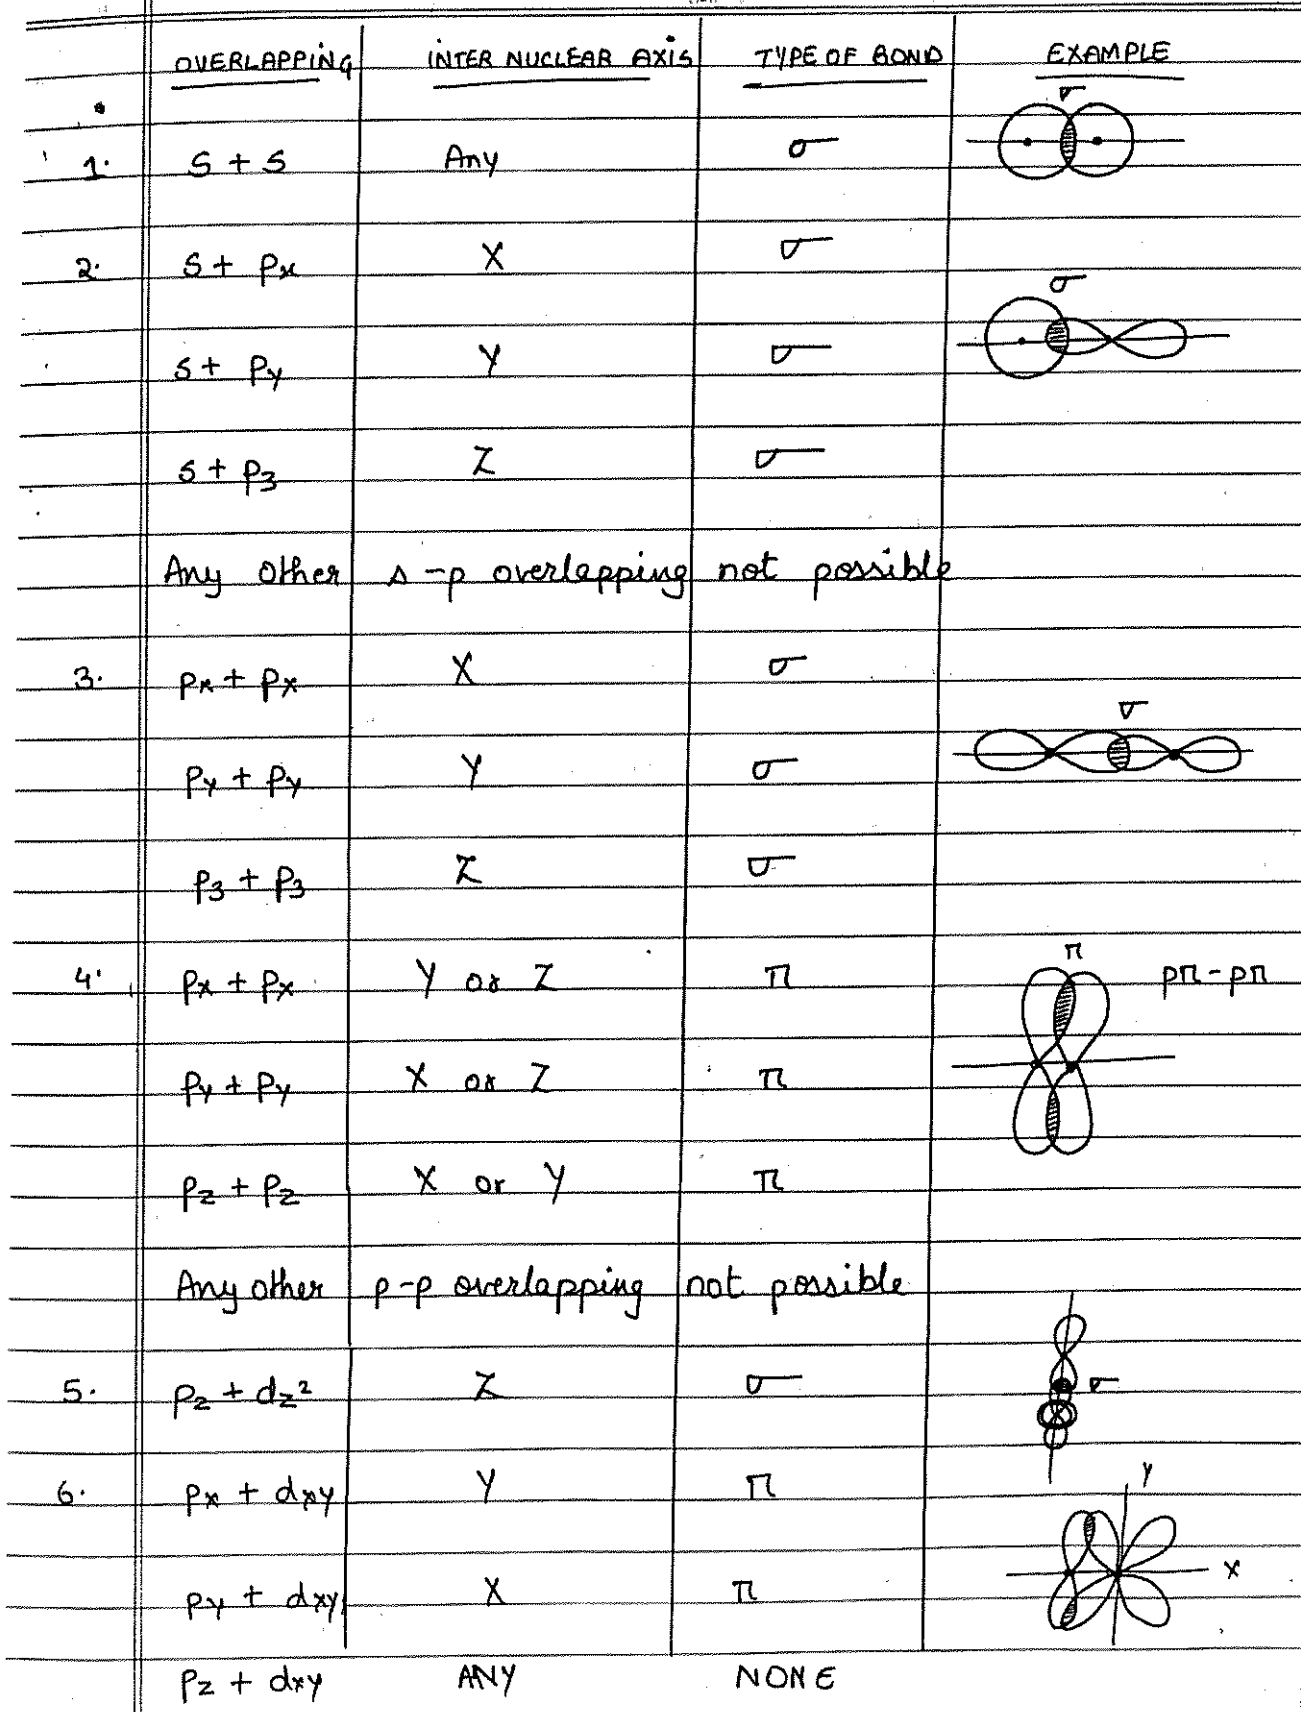 OVERLAPPING INTER NUCLEAR AXIS TYPE OF BOND EXAMPLE
σ
1. S + S Any σ
2. S + Px X σ
σ
S + Py Y σ
S + P3 Z σ
Any other s-p overlapping not possible
3. Px + Px X σ
σ
Py + Py Y σ
P3 + P3 Z σ
π
4. Px + Px Y or Z π pπ-pπ
Py + Py X or Z π
Pz + Pz X or Y π
Any other p-p overlapping not possible
5. Pz + dz² Z σ σ
Y
6. Px + dxy Y π
X
Py + dxy X π
Pz + dxy ANY NONE